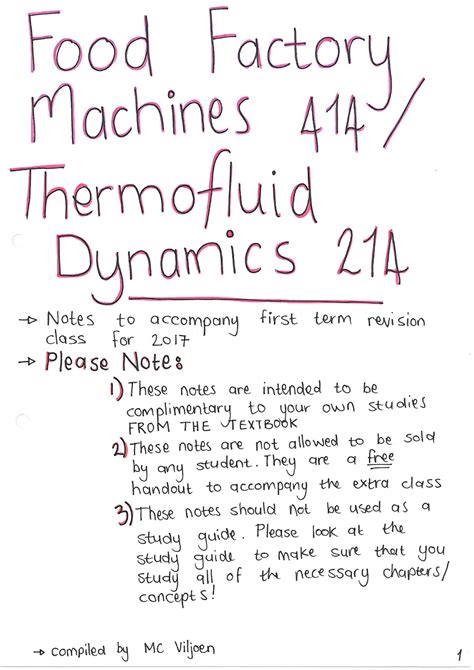 Food Factory
Machines 414/
Thermofluid
Dynamics 214
→ Notes to accompany first term revision
class for 2017
→ Please Note:
1) These notes are intended to be
complimentary to your own studies
FROM THE TEXTBOOK
2) These notes are not allowed to be sold
by any student. They are a free
handout to accompany the extra class
3) These notes should not be used as a
study guide. Please look at the
study guide to make sure that you
study all of the necessary chapters/
concepts!
→ compiled by MC Viljoen
1